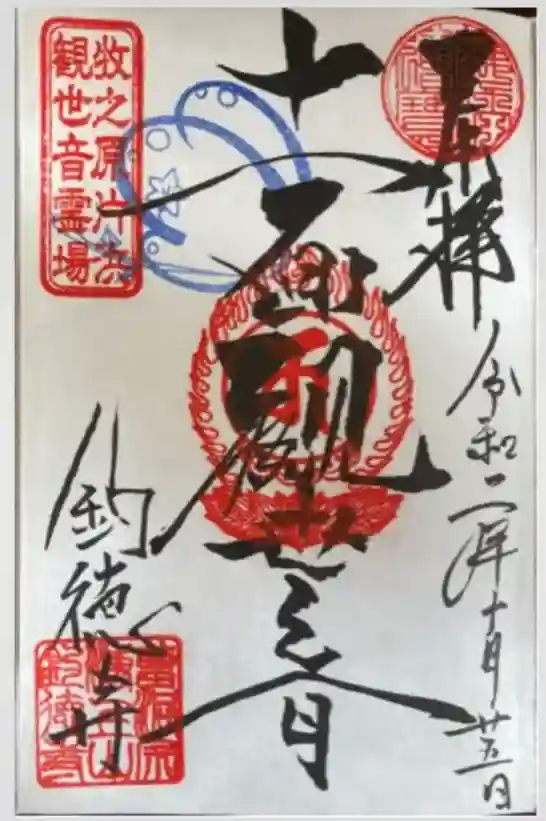 奉拝
令和二年十月廿五日
十一面観世音
牧之原
観世音霊場
釣徳寺